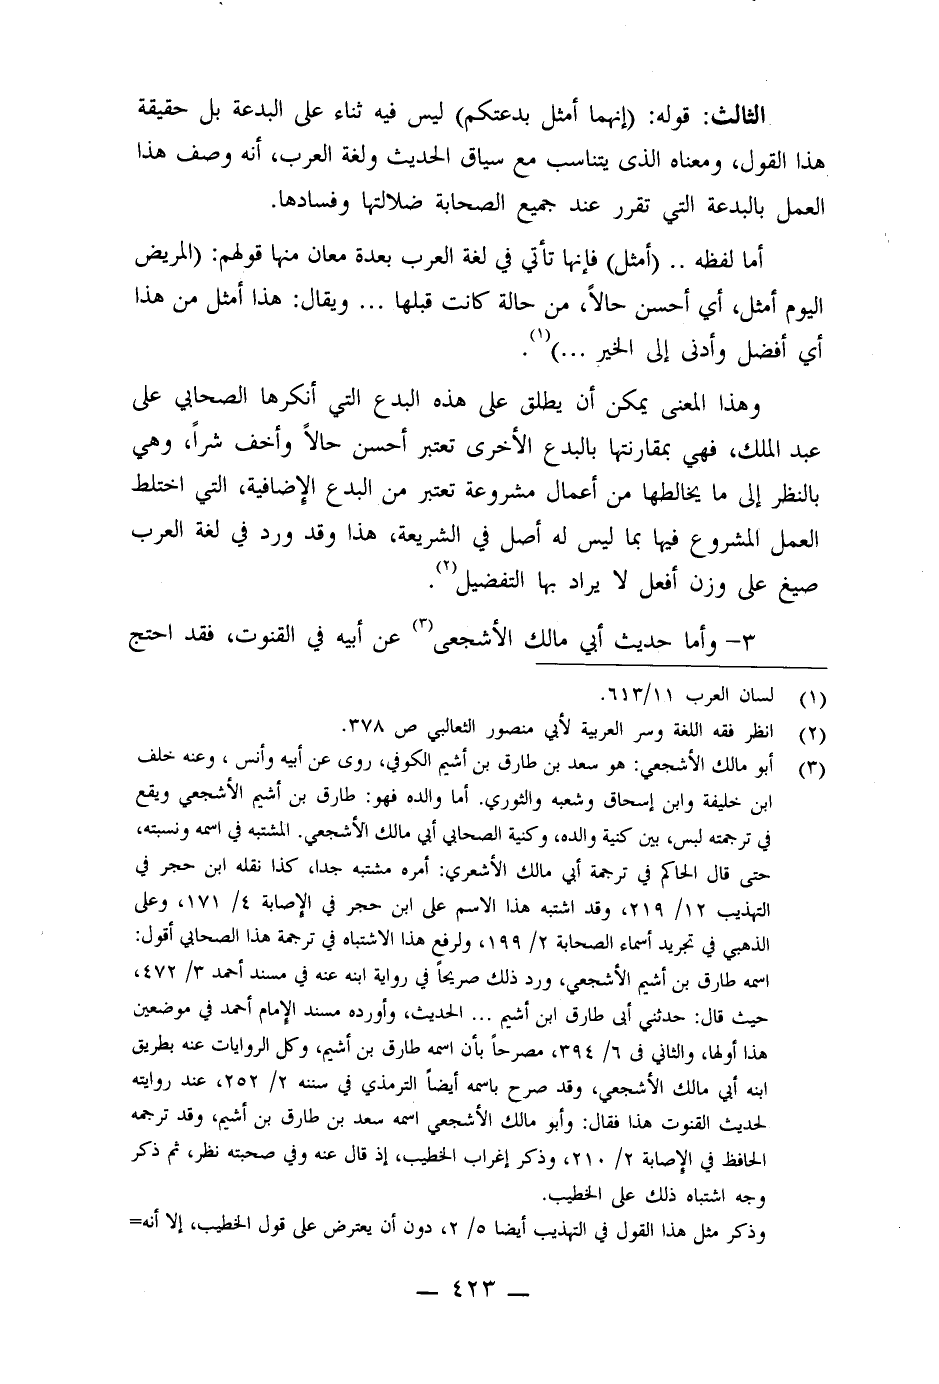 الثالث: قوله: (إنهما أمثل بدعتكم) ليس فيه ثناء على البدعة بل حقيقة
هذا القول، ومعناه الذى يتناسب مع سياق الحديث ولغة العرب، أنه وصف هذا
العمل بالبدعة التي تقرر عند جميع الصحابة ضلالتها وفسادها.
أما لفظه .. (أمثل) فإنها تأتي في لغة العرب بعدة معان منها قولهم: (المريض
اليوم أمثل، أي أحسن حالاً، من حالة كانت قبلها ... ويقال: هذا أمثل من هذا
أي أفضل وأدنى إلى الخير ...)(١).
وهذا المعنى يمكن أن يطلق على هذه البدع التي أنكرها الصحابي على
عبد الملك، فهي بمقارنتها بالبدع الأخرى تعتبر أحسن حالاً وأخف شراً، وهي
بالنظر إلى ما يخالطها من أعمال مشروعة تعتبر من البدع الإضافية، التي اختلط
العمل المشروع فيها بما ليس له أصل في الشريعة، هذا وقد ورد في لغة العرب
صيغ على وزن أفعل لا يراد بها التفضيل(٢).
٣- وأما حديث أبي مالك الأشجعى(٣) عن أبيه في القنوت، فقد احتج
(١) لسان العرب ٦١٣/١١.
(٢) انظر فقه اللغة وسر العربية لأبي منصور الثعالبي ص ٣٧٨.
(٣) أبو مالك الأشجعي: هو سعد بن طارق بن أشيم الكوفي، روى عن أبيه وأنس ، وعنه خلف
ابن خليفة وابن إسحاق وشعبه والثوري. أما والده فهو: طارق بن أشيم الأشجعي ويقع
في ترجمته لبس، بين كنية والده، وكنية الصحابي أبي مالك الأشجعي. المشتبه في اسمه ونسبته،
حتى قال الحاكم في ترجمة أبي مالك الأشعري: أمره مشتبه جدا، كذا نقله ابن حجر في
التهذيب ١٢/ ٢١٩، وقد اشتبه هذا الاسم على ابن حجر في الإصابة ٤/ ١٧١، وعلى
الذهبي في تجريد أسماء الصحابة ٢/ ١٩٩، ولرفع هذا الاشتباه في ترجمة هذا الصحابي أقول:
اسمه طارق بن أشيم الأشجعي، ورد ذلك صريحاً في رواية ابنه عنه في مسند أحمد ٣/ ٤٧٢،
حيث قال: حدثني أبى طارق ابن أشيم ... الحديث، وأورده مسند الإمام أحمد في موضعين
هذا أولها، والثاني فى ٦/ ٣٩٤، مصرحاً بأن اسمه طارق بن أشيم، وكل الروايات عنه بطريق
ابنه أبي مالك الأشجعي، وقد صرح باسمه أيضاً الترمذي في سننه ٢/ ٢٥٢، عند روايته
لحديث القنوت هذا فقال: وأبو مالك الأشجعي اسمه سعد بن طارق بن أشيم، وقد ترجمه
الحافظ في الإصابة ٢/ ٢١٠، وذكر إغراب الخطيب، إذ قال عنه وفي صحبته نظر، ثم ذكر
وجه اشتباه ذلك على الخطيب.
وذكر مثل هذا القول في التهذيب أيضا ٥/ ٢، دون أن يعترض على قول الخطيب، إلا أنه=
— ٤٢٣ —